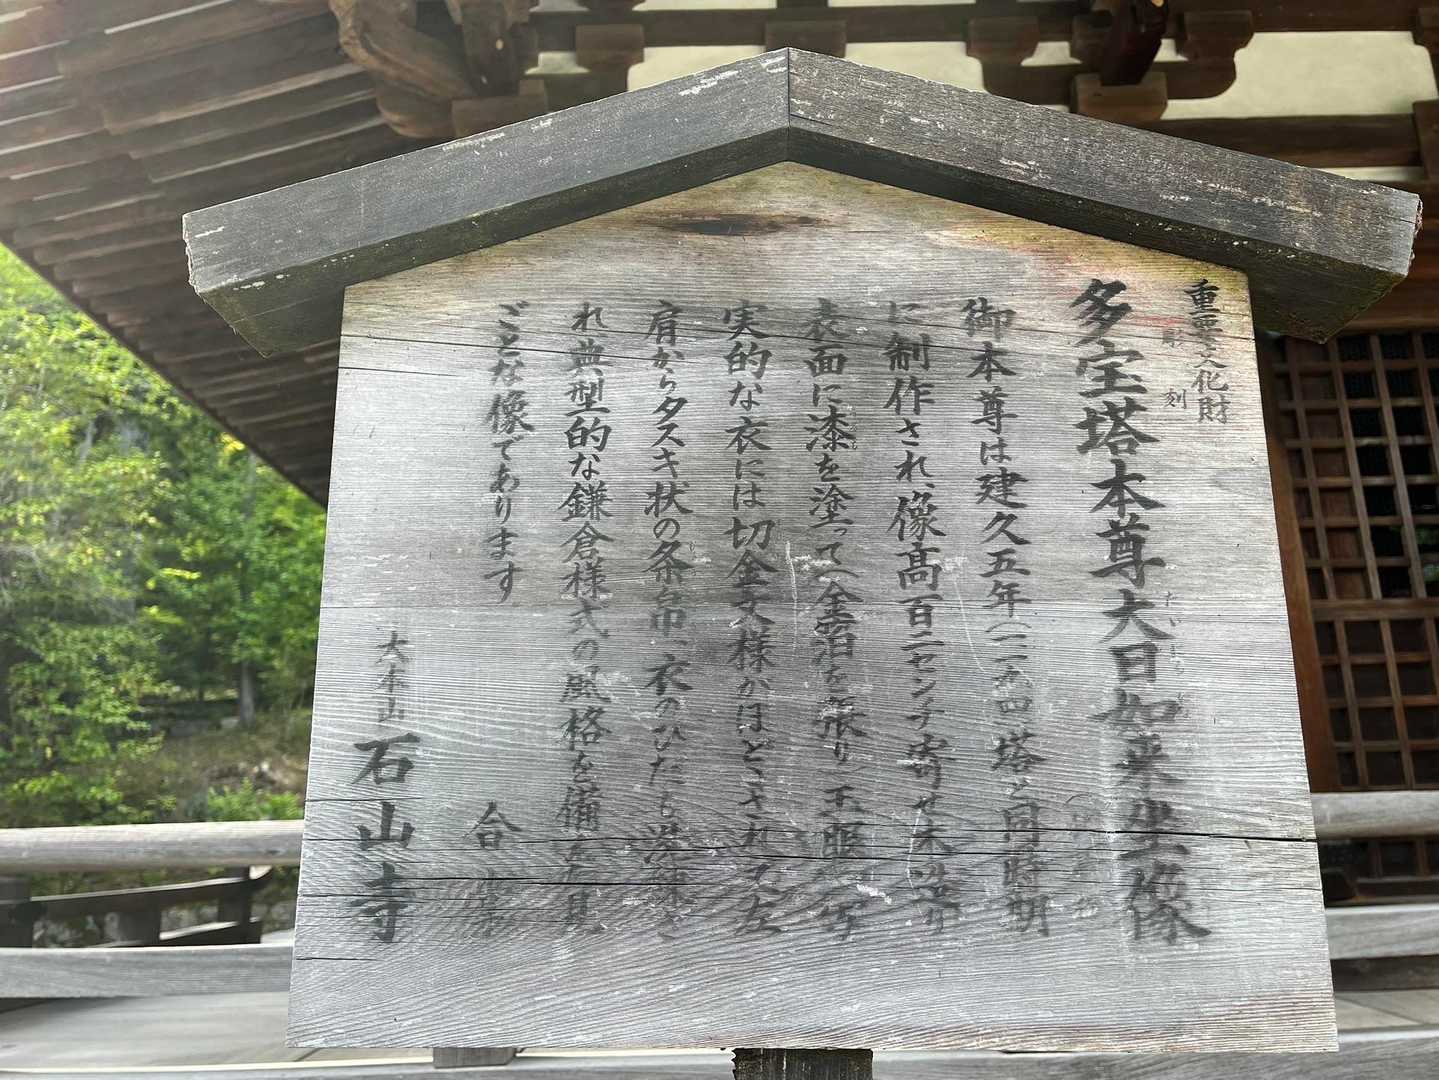 重要文化財
彫刻
多宝塔本尊大日如来坐像
御本尊は建久五年(一一九四)塔と同時期
に制作され、像高百二センチ寄せ木造り
表面に漆を塗って(金箔を張り)玉眼、写
実的な衣には切金文様がほどこされ、左
肩からタスキ状の条帛、衣のひだも洗練さ
れ典型的な鎌倉様式の風格を備えた見
ごとな像であります
合掌
大本山 石山寺